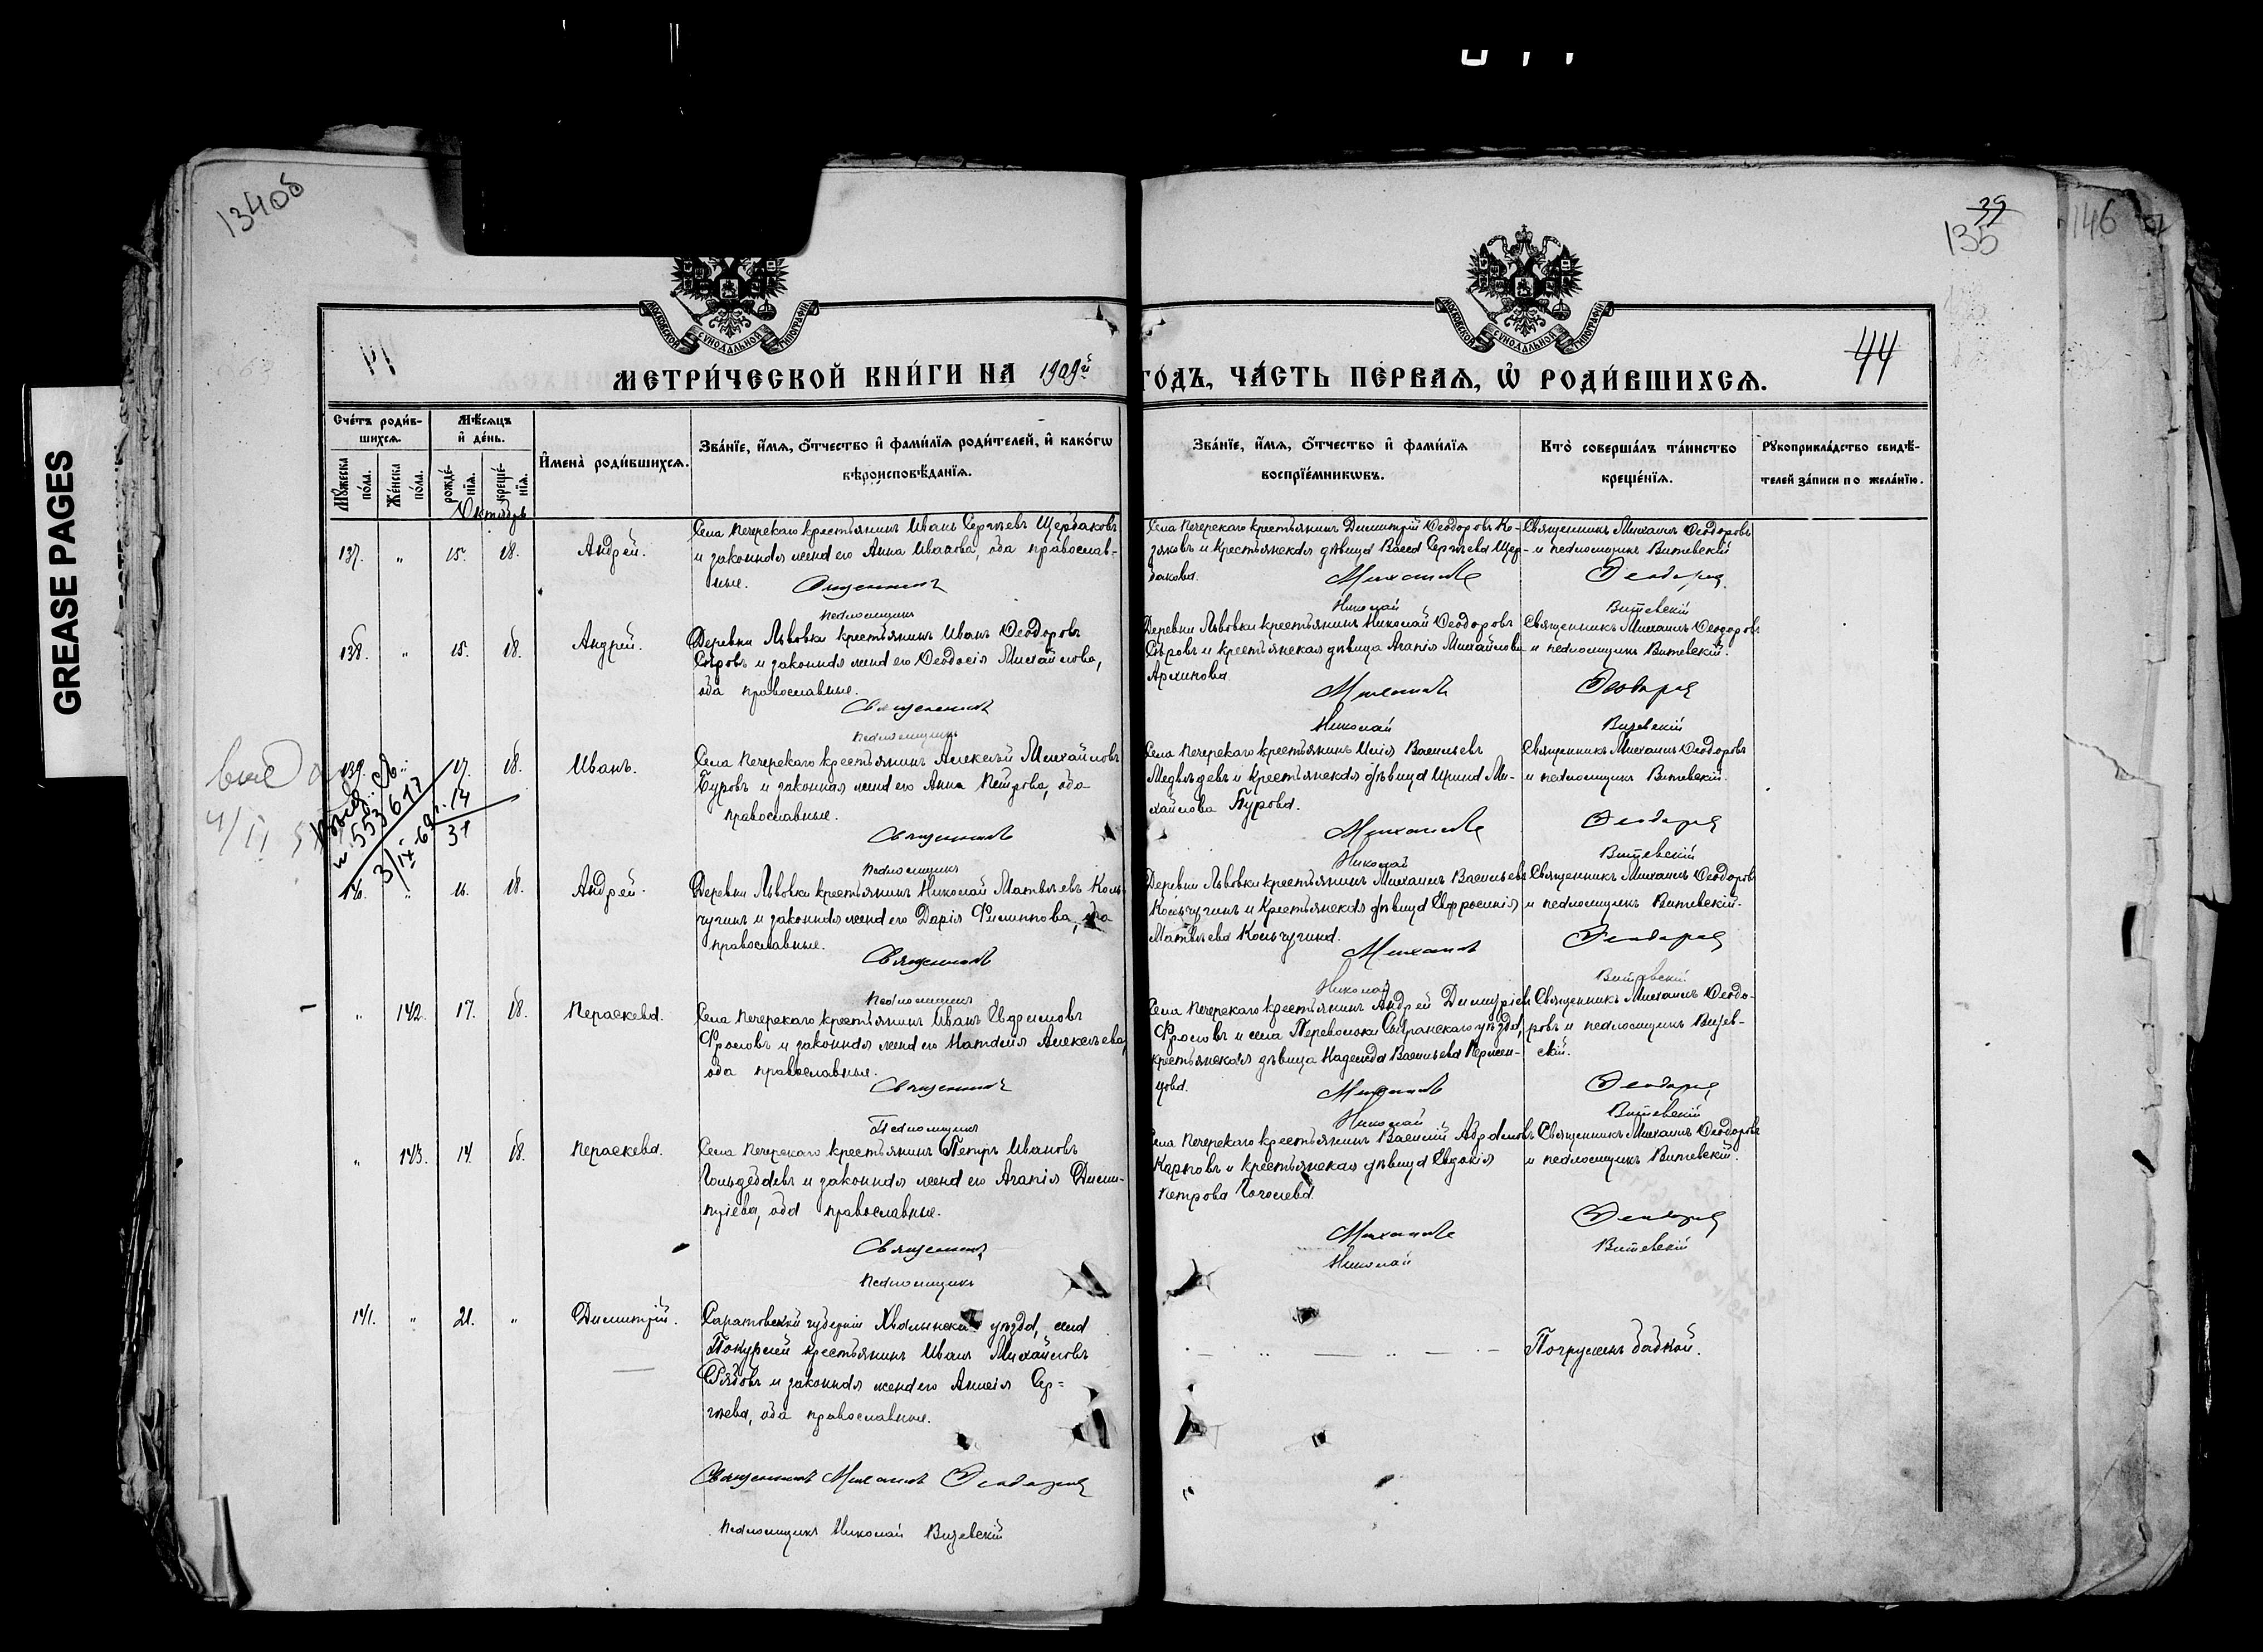 GREASE PAGES
134об
39
135
146
44
МОСКОВСКОЙ СѴНОДАЛЬНОЙ ТИПОГРАФІИ
МОСКОВСКОЙ СѴНОДАЛЬНОЙ ТИПОГРАФІИ
МЕТРИ́ЧЕСКОЙ КНИ́ГИ НА 1909й ГО́ДЪ, ЧА́СТЬ ПЕ́РВАѦ, Ѽ РОДИ́ВШИХСѦ.
Сче́тъ роди́в-
шихсѧ.
Мꙋ́жеска
по́ла.
Же́нска
по́ла.
Мѣ́сѧцъ
и҆ де́нь.
рожде́-
нїѧ.
креще́-
нїѧ.
И҆мена̀ роди́вшихсѧ.
Зва́нїе, и҆́мѧ, ѻ҆́тчество и҆ фами́лїѧ роди́телей, и҆ како́гѡ
вѣроисповѣ́данїѧ.
Зва́нїе, и҆́мѧ, ѻ҆́тчество и҆ фами́лїѧ
воспрїе́мникѡвъ.
Кто̀ соверша́лъ та́инство
креще́нїѧ.
Рꙋкоприкла́дство свидѣ́-
телей за́писи по жела́нїю.
Октябрь
137. " 15. 18. Андрей.
Села Печерскаго крестьянинъ Иванъ Сергѣевъ Щербаковъ
и законная жена его Анна Иванова, оба православ-
ные.
Священникъ
Псаломщикъ
Села Печерскаго крестьянинъ Димитрій Ѳеодоровъ Ко-
зяковъ и крестьянская дѣвица Васса Сергѣева Щер-
бакова.
Михаилъ
Николай
Священникъ Михаилъ Ѳеодоровъ
и псаломщикъ Витевскій
Ѳеодоровъ
Витевскій
138. " 15. 18. Андрей.
Деревни Львовки крестьянинъ Иванъ Ѳеодоровъ
Сѣровъ и законная жена его Ѳеодосія Михайлова,
оба православные.
Священникъ
Псаломщикъ
Деревни Львовки крестьянинъ Николай Ѳеодоровъ
Сѣровъ и крестьянская дѣвица Агапія Михайлова
Архипова.
Михаилъ
Николай
Священникъ Михаилъ Ѳеодоровъ
и псаломщикъ Витевскій.
Ѳеодоровъ
Витевскій
139. 17. 18. Иванъ.
553617
3/IX-69г.
14
31
Села Печерскаго крестьянинъ Алексѣй Михайловъ
Буровъ и законная жена его Анна Петрова, оба
православные.
Священникъ
Псаломщикъ
Села Печерскаго крестьянинъ Илія Васильевъ
Медвѣдевъ и крестьянская дѣвица Ирина Ми-
хайлова Бурова.
Михаилъ
Николай
Священникъ Михаилъ Ѳеодоровъ
и псаломщикъ Витевскій.
Ѳеодоровъ
Витевскій
" 16. 18. Андрей.
Деревни Львовки крестьянинъ Николай Матвѣевъ Коль-
чугинъ и законная жена его Дарія Филиппова, оба
православные.
Священникъ
Псаломщикъ
Деревни Львовки крестьянинъ Михаилъ Васильевъ
Кольчугинъ и крестьянская дѣвица Евфросинія
Матвѣева Кольчугина.
Михаилъ
Николай
Священникъ Михаилъ Ѳеодоровъ
и псаломщикъ Витевскій.
Ѳеодоровъ
Витевскій
" 142. 17. 18. Параскева.
Села Печерскаго крестьянинъ Иванъ Евфимовъ
Фроловъ и законная жена его Наталія Алексѣева,
оба православные.
Священникъ
Псаломщикъ
Села Печерскаго крестьянинъ Андрей Димитріевъ
Фроловъ и села Переволоки Сызранскаго уѣзда,
крестьянская дѣвица Надежда Васильева
Михаилъ
Николай
Священникъ Михаилъ Ѳеодо-
ровъ и псаломщикъ Витев-
скій.
Ѳеодоровъ
Витевскій
" 143. 14. 18. Параскева.
Села Печерскаго крестьянинъ Петръ Ивановъ
и законная жена его Агапія Дими-
тріева, оба православные.
Священникъ
Псаломщикъ
Села Печерскаго крестьянинъ Василій
Карповъ и крестьянская дѣвица Евдокія
Петрова
Михаилъ
Николай
Священникъ Михаилъ Ѳеодоровъ
и псаломщикъ Витевскій.
Ѳеодоровъ
Витевскій
141. " 21. " Димитрій.
Саратовской губерніи Хвалынскаго уѣзда, села
крестьянинъ Иванъ Михайловъ
Рябовъ и законная жена его Анисія Сер-
гѣева, оба православные.
Погруженъ бабкой.
Священникъ Михаилъ Ѳеодоровъ
Псаломщикъ Николай Витевскій